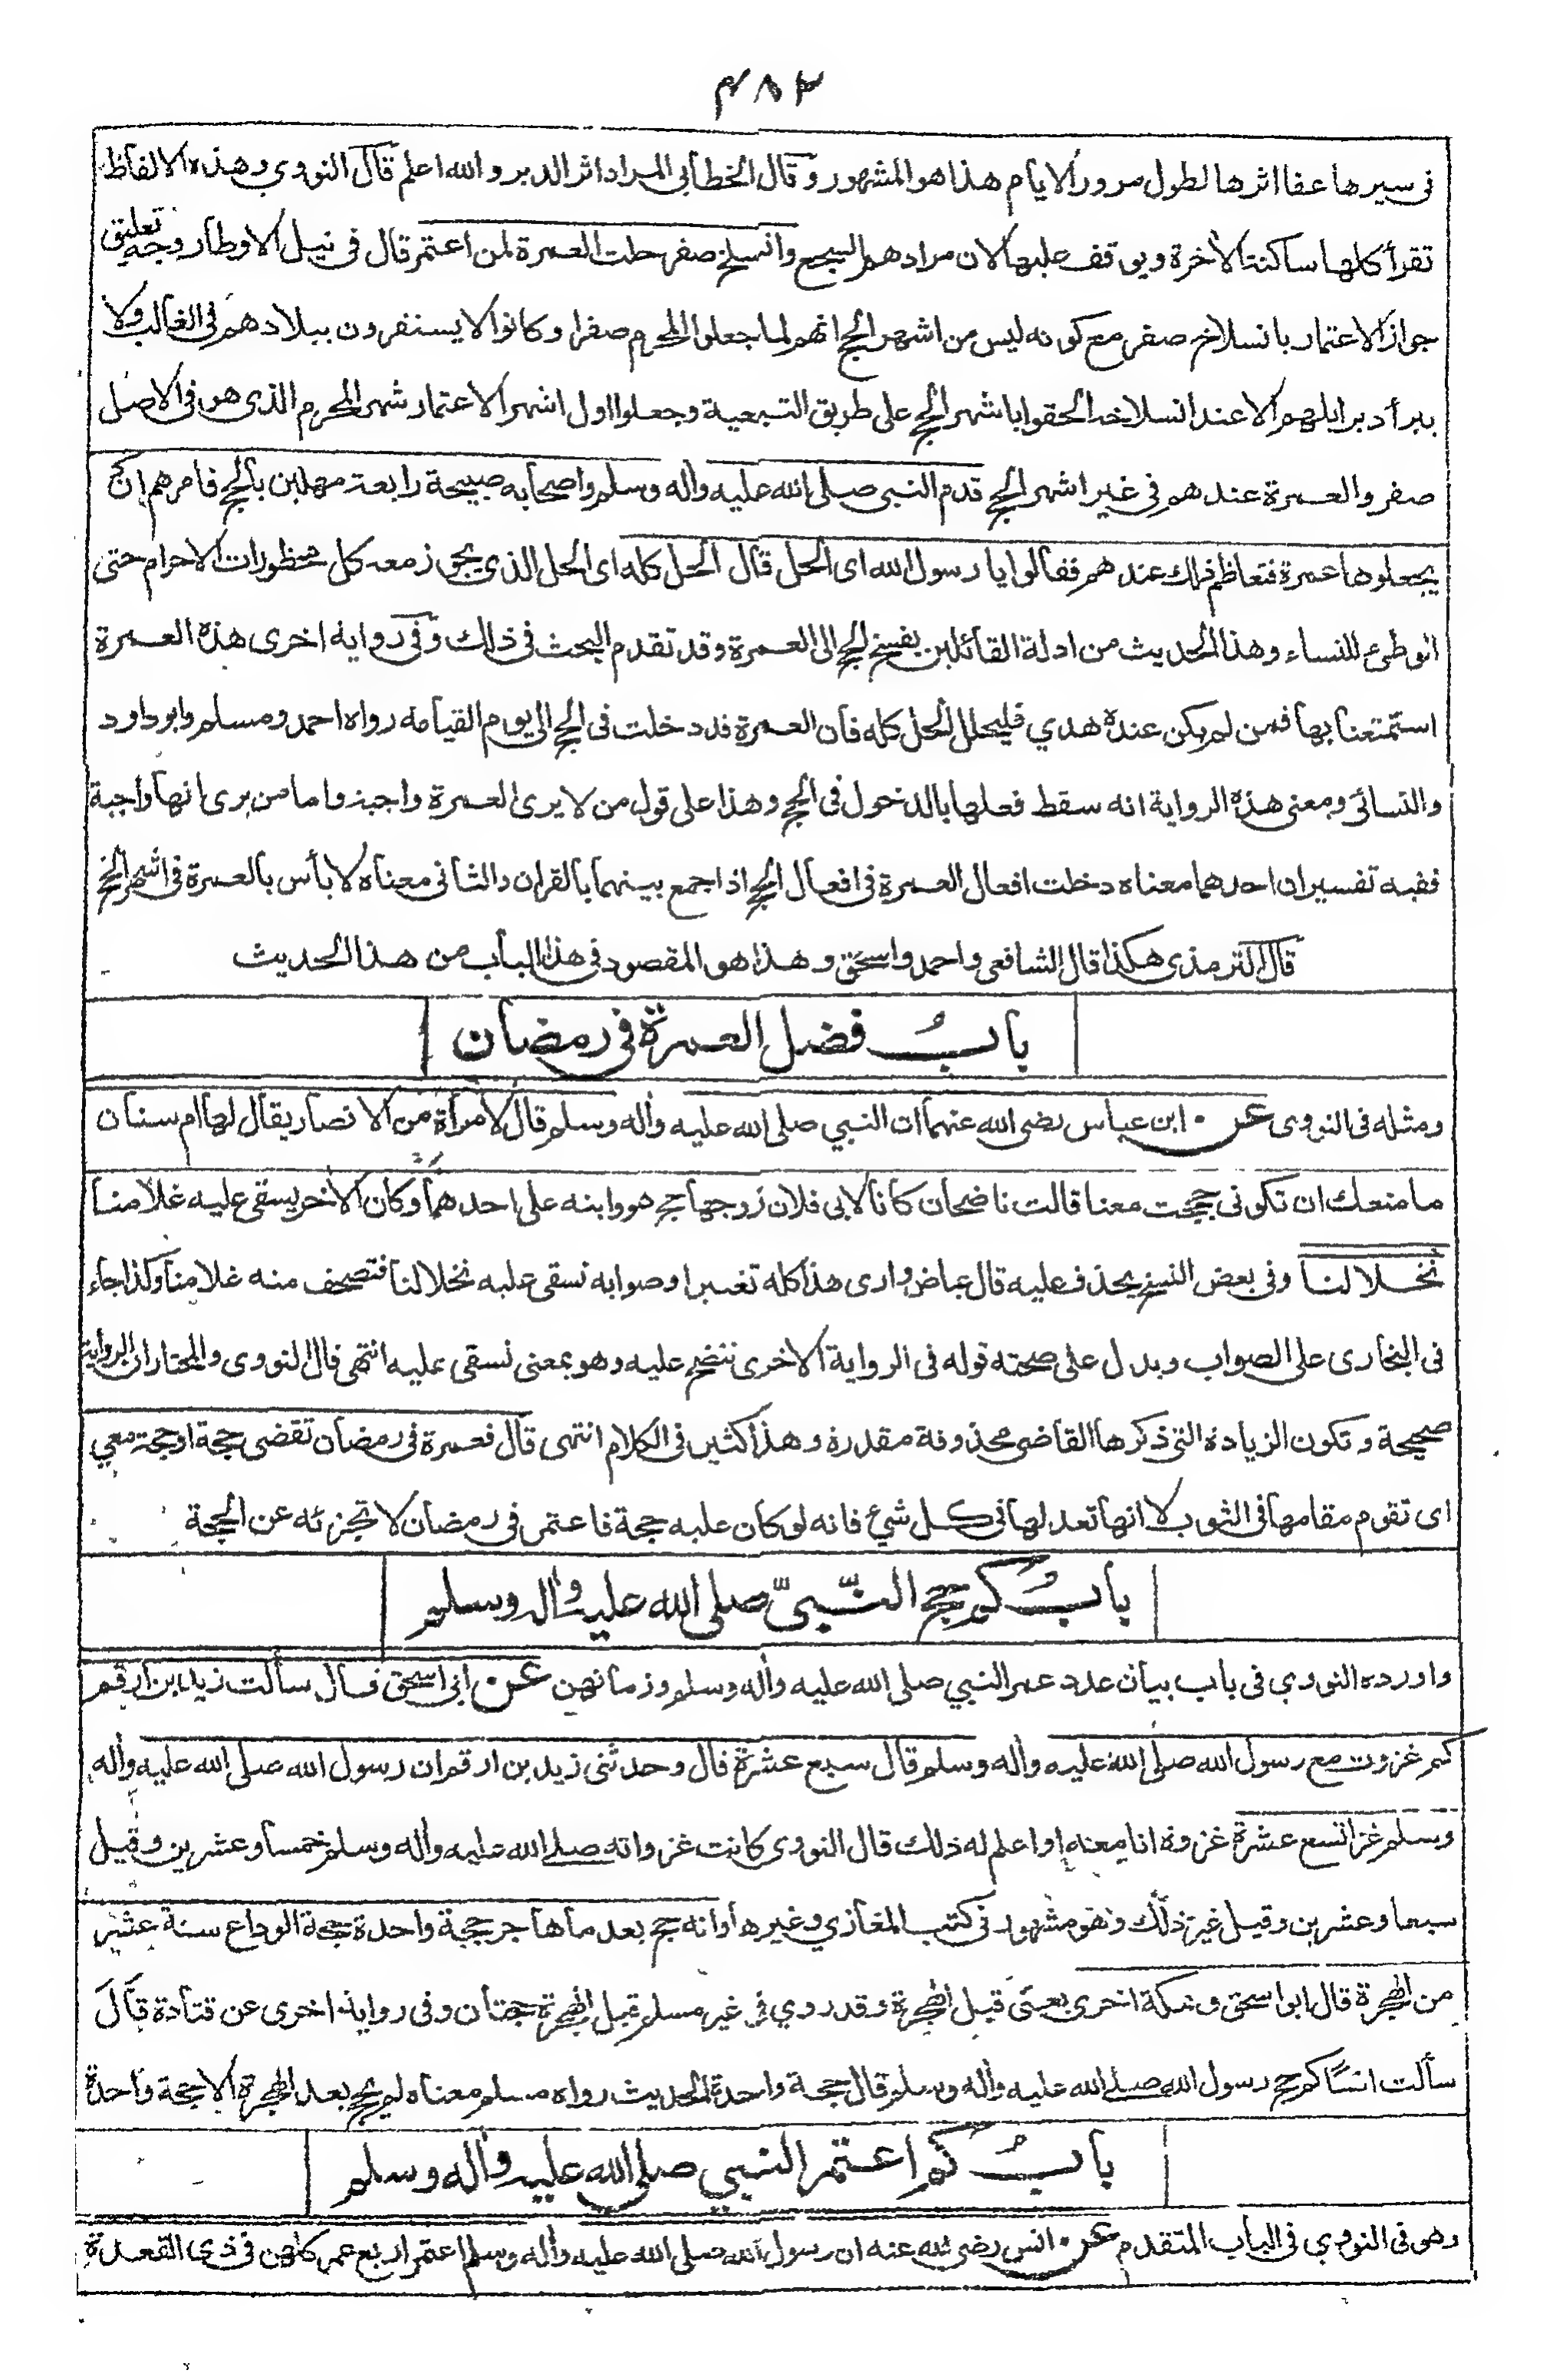 ٤٨٣
في سيرها عفا اثرها لطول مرور الايام هذا هو المشهور وقال الخطابي المراد اثر الدبر والله اعلم قال النووي وهذه الالفاظ
تقرأ كلها ساكنة الأخرة ويوقف عليها لان مرادهم السجع وانسلخ صفر حلت العمرة لمن اعتمر قال في نيل الاوطار وجه تعليق
جواز الاعتمار بانسلاخ صفر مع كونه ليس من اشهر الحج انهم لما جعلوا المحرم صفرا وكانوا لا يستقرون ببلادهم في الغالب ولا
يبرأ دبر ابلهم الا عند انسلاخه الحقوا با شهر الحج على طريق التبعية وجعلوا اول اشهر الاعتمار شهر المحرم الذى هو في الاصل
صفر والعمرة عندهم في غير اشهر الحج قدم النبي صلى الله عليه وأله وسلم واصحابه صبيحة رابعة مهلين بالحج فامرهم ان
يجعلوها عمرة فتعاظم ذلك عندهم فقالوا يا رسول الله اى الحل قال الحل كله اى الحل الذي يجوز معه كل محظورات الاحرام حتى
الوطئ للنساء وهذا الحديث من ادلة القائلين بفسخ الحج الى العمرة وقد تقدم البحث في ذلك وفي رواية اخرى هذه العمرة
استمتعنا بها فمن لم يكن عنده هدي فليحلل الحل كله فان العمرة قد دخلت في الحج الى يوم القيامة رواه احمد ومسلم وابو داود
والنسائى ومعنى هذه الرواية انه سقط فعلها بالدخول في الحج وهذا على قول من لا يرى العمرة واجبة واما من يرى انها واجبة
ففيه تفسيران احدهما معناه دخلت افعال العمرة في افعال الحج اذا جمع بينهما بالقران والثاني معناه لا بأس بالعمرة في اشهر الحج
قال الترمذى هكذا قال الشافعي واحمد واسحق وهذا هو المقصود في هذا الباب من هذا الحديث
باب فضل العمرة في رمضان
ومثله في النووى عن ابن عباس رضى الله عنهما ان النبي صلى الله عليه وأله وسلم قال لامرأة من الانصار يقال لها ام سنان
ما منعك ان تكوني حججت معنا قالت ناضحان كانا لابى فلان زوجها حج هو وابنه على احدهما وكان الاخر يسقى عليه غلامنا
نخلا لنا وفي بعض النسخ بحذف عليه قال عياض وارى هذا كله تغييرا وصوابه نسقى عليه نخلا لنا فتصحف منه غلامنا وكذا جاء
في البخارى على الصواب ويدل على صحته قوله في الرواية الاخرى ننضح عليه وهو بمعنى نسقى عليه انتهى قال النووى والمختار ان الرواية
صحيحة وتكون الزيادة التي ذكرها القاضي محذوفة مقدرة وهذا كثير في الكلام انتهى قال فعمرة في رمضان تقضى حجة او حجة معي
اى تقوم مقامها في الثوب لا انها تعدلها في كل شئ فانه لو كان عليه حجة فاعتمر في رمضان لا تجزئه عن الحجة
باب كم حج النبيّ صلى الله عليه وأله وسلم
واورده النووي في باب بيان عدد عمر النبي صلى الله عليه وأله وسلم وزمانهن عن ابى اسحق قال سألت زيد بن ارقم
كم غزوت مع رسول الله صلى الله عليه وأله وسلم قال سبع عشرة قال وحدثنى زيد بن ارقم ان رسول الله صلى الله عليه وأله
وسلم غزا تسع عشرة غزوة انا معه او اعلم له ذلك قال النووى كانت غزواته صلى الله عليه وأله وسلم خمسا وعشرين وقيل
سبعا وعشرين وقيل غير ذلك وهو مشهور في كتب المغازي وغيرها وانه حج بعد ما هاجر حجة واحدة حجة الوداع سنة عشر
من الهجرة قال ابو اسحق وبمكة اخرى يعنى قبل الهجرة وقد روي في غير مسلم قبل الهجرة حجتان وفي رواية اخرى عن قتادة قال
سألت انسًا كم حج رسول الله صلى الله عليه وأله وسلم قال حجة واحدة الحديث رواه مسلم معناه لم يحج بعد الهجرة الا حجة واحدة
باب كم اعتمر النبي صلى الله عليه وأله وسلم
وهو في النووي في الباب المتقدم عن انس رضى الله عنه ان رسول الله صلى الله عليه وأله وسلم اعتمر اربع عمر كلهن في ذى القعدة